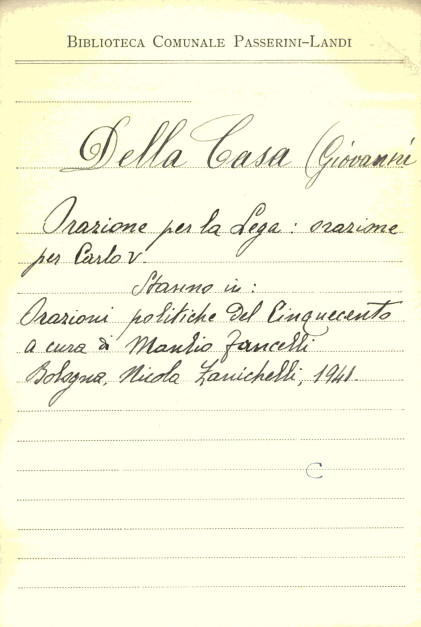 BIBLIOTECA COMUNALE PASSERINI-LANDI
Della Casa (Giovanni
Orazione per la Lega: orazione
per Carlo V.
Stanno in:
Orazioni politiche del Cinquecento
a cura di Manlio Fancelli
Bologna, Nicola Zanichelli, 1941.
C